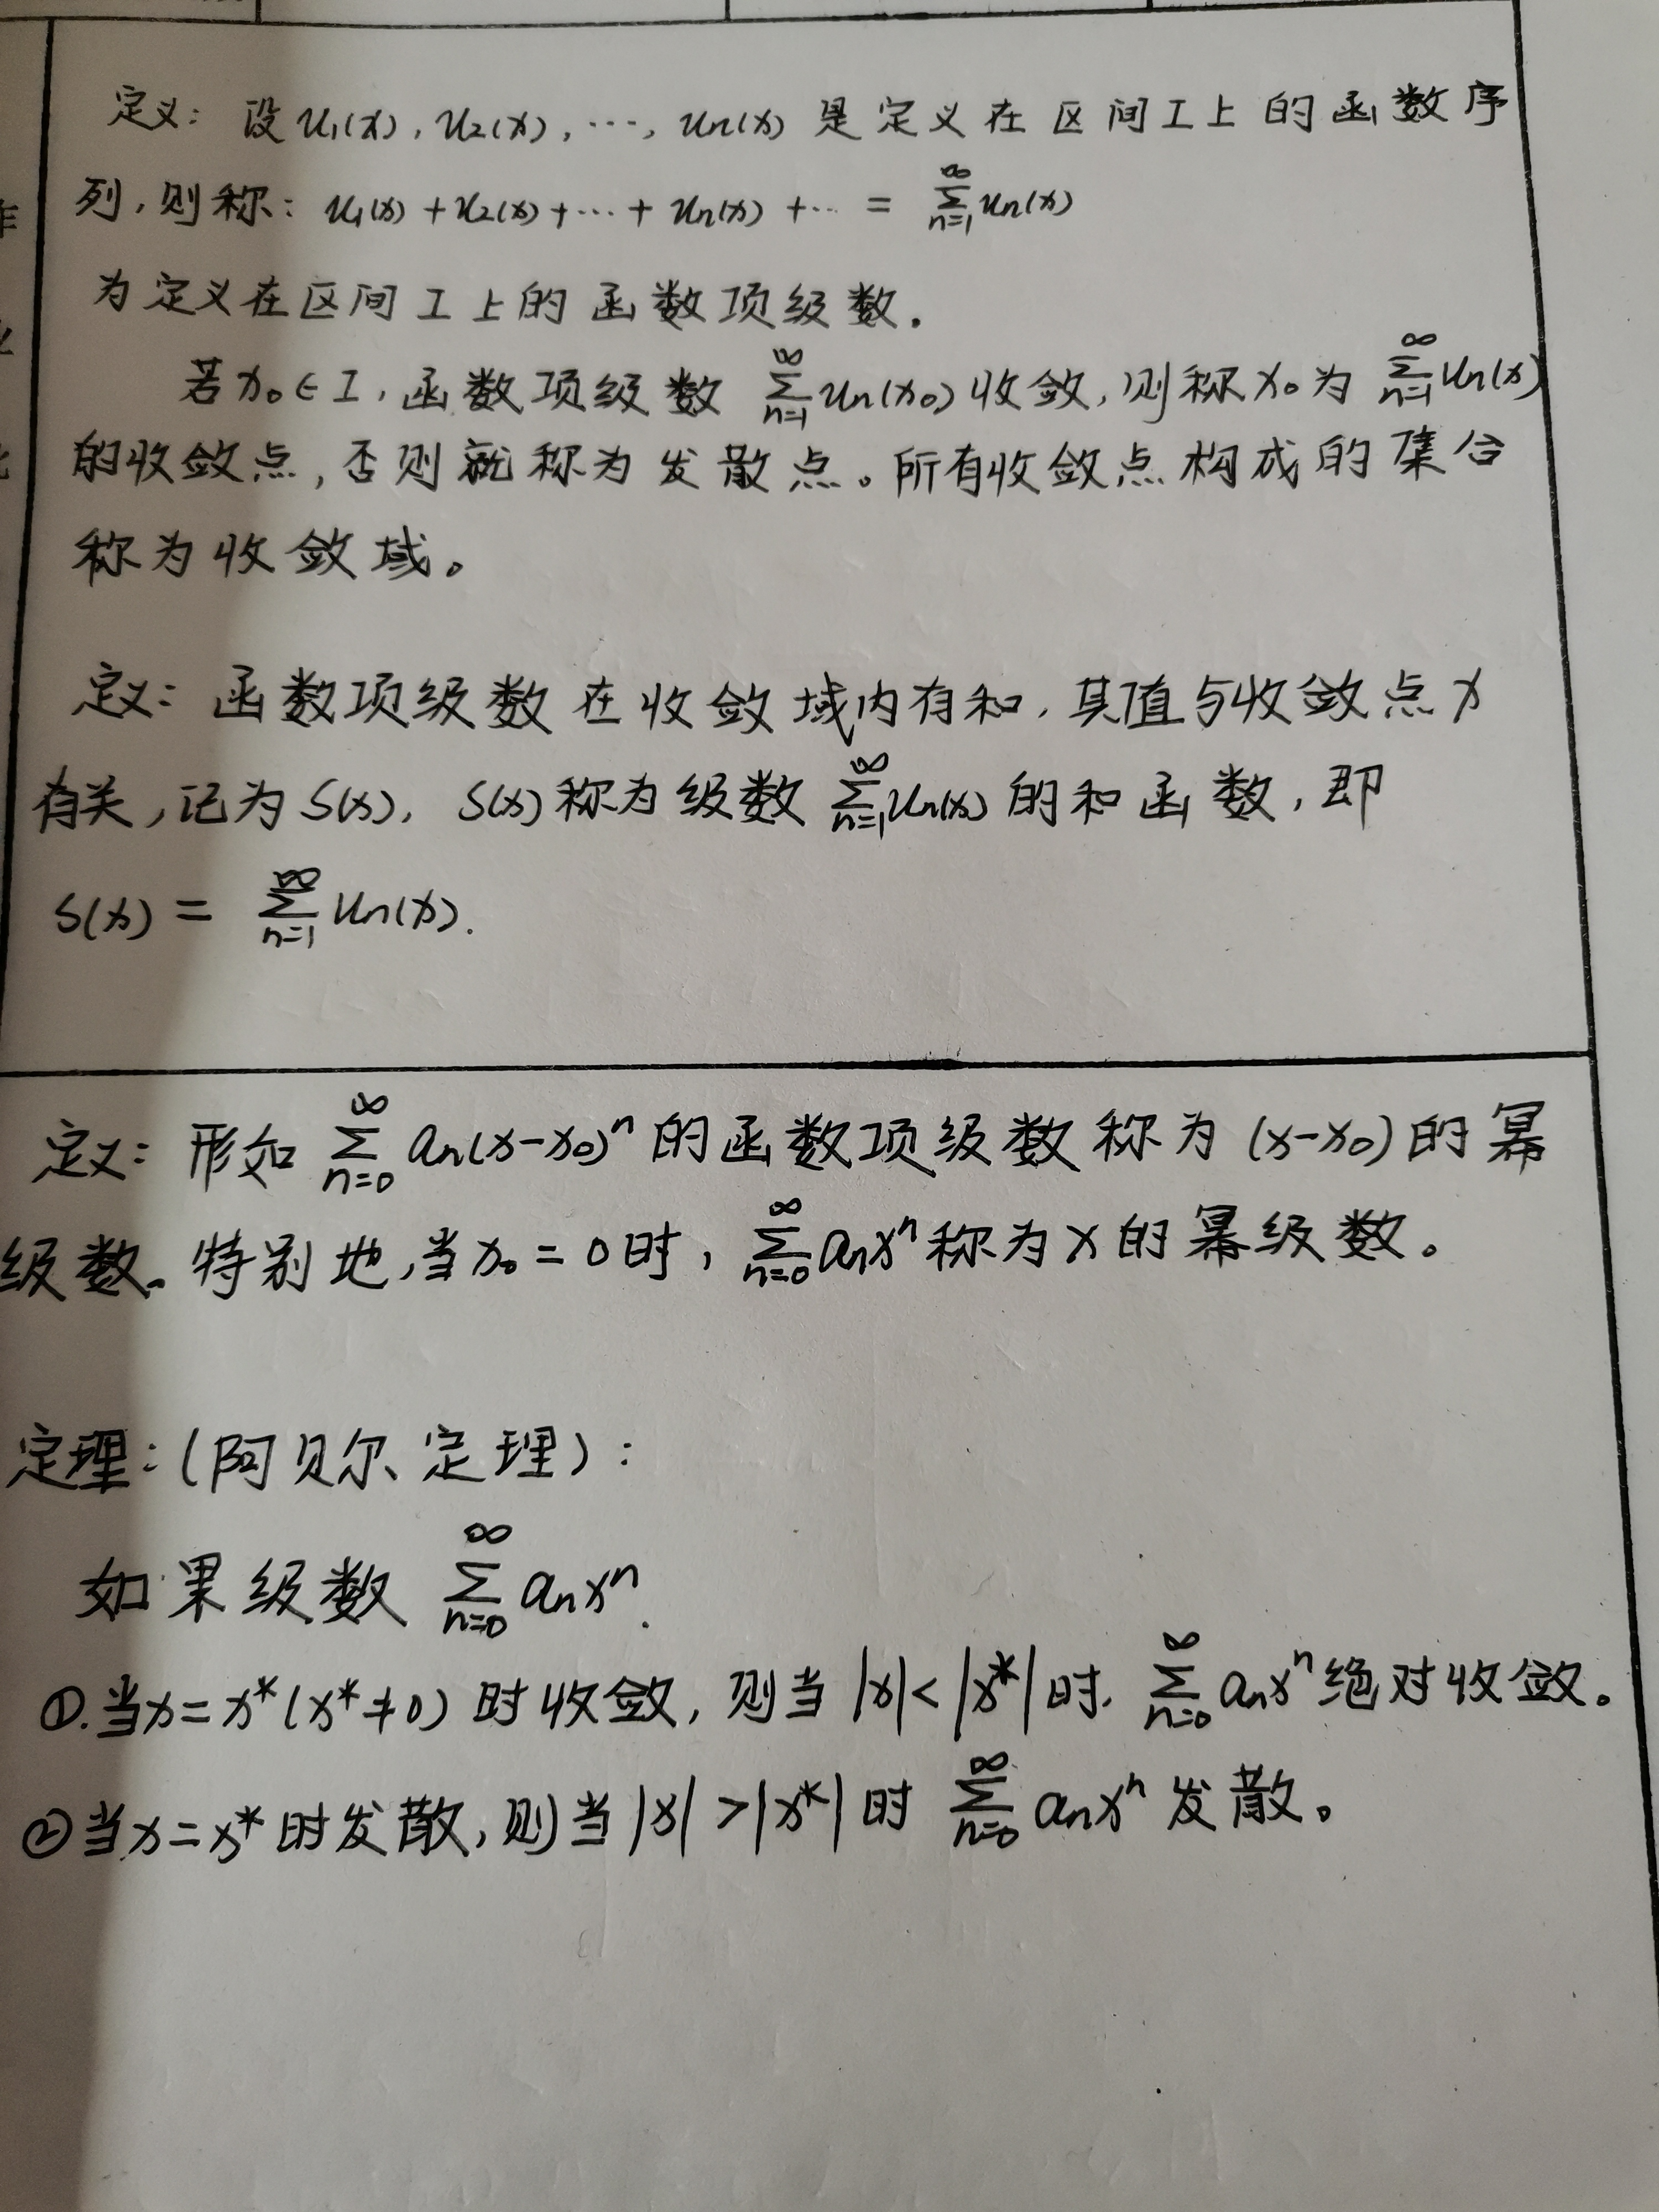 定义：设 u₁(x), u₂(x), ⋯, uₙ(x) 是定义在区间 I 上的函数序
列，则称：u₁(x) + u₂(x) + ⋯ + uₙ(x) + ⋯ = ∑_{n=1}^{∞} uₙ(x)
为定义在区间 I 上的函数项级数.
若 x₀ ∈ I, 函数项级数 ∑_{n=1}^{∞} uₙ(x₀) 收敛, 则称 x₀ 为 ∑_{n=1}^{∞} uₙ(x)
的收敛点, 否则就称为发散点。所有收敛点构成的集合
称为收敛域。
定义：函数项级数在收敛域内有和, 其值与收敛点 x
有关, 记为 S(x), S(x) 称为级数 ∑_{n=1}^{∞} uₙ(x) 的和函数, 即
S(x) = ∑_{n=1}^{∞} uₙ(x).
定义：形如 ∑_{n=0}^{∞} aₙ(x-x₀)ⁿ 的函数项级数称为 (x-x₀) 的幂
级数。特别地, 当 x₀ = 0 时, ∑_{n=0}^{∞} aₙxⁿ 称为 x 的幂级数。
定理：(阿贝尔定理)：
如果级数 ∑_{n=0}^{∞} aₙxⁿ.
①.当 x = x* (x* ≠ 0) 时收敛, 则当 |x| < |x*| 时, ∑_{n=0}^{∞} aₙxⁿ 绝对收敛。
②当 x = x* 时发散, 则当 |x| > |x*| 时 ∑_{n=0}^{∞} aₙxⁿ 发散。